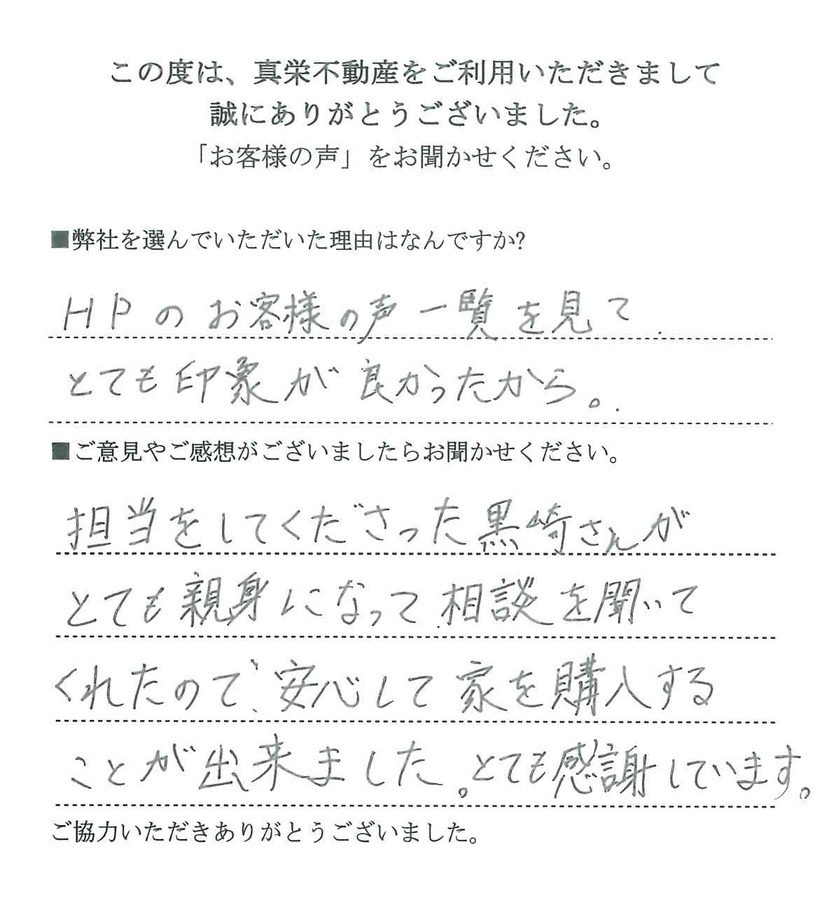 この度は、真栄不動産をご利用いただきまして
誠にありがとうございました。
「お客様の声」をお聞かせください。
■弊社を選んでいただいた理由はなんですか?
HPのお客様の声一覧を見て
とても印象が良かったから。
■ご意見やご感想がございましたらお聞かせください。
担当をしてくださった黒崎さんが
とても親身になって相談を聞いて
くれたので、安心して家を購入する
ことが出来ました。とても感謝しています。
ご協力いただきありがとうございました。